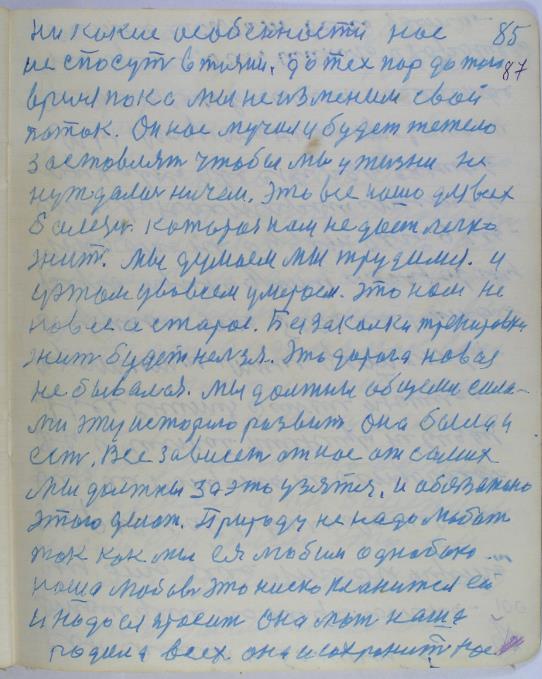 ни какие особенности нас 85
не спосут в жизни. до тех пор до того 87
время пока мы не изменим свой
поток. Он нас мучал и будет тежело
заставлят чтобы мы у жизни не
нуждалис ничем. Это все нашо для всех
балезн. которая нам не дает легко
жит. Мы думаем мы трудимся. и
у этом у во всем умераем. Это нам не
новое а старое. Без закалки тренировки
жит будет нелзя. Это дорога новая
не бывалая. Мы должны общеми сила-
ми эту историю развит. она была и
ест. Все зависет от нас от самих
мы должны за это узятся. и обязательно
этого делат. Природу не надо любит
так как мы ея любим однобоко.
наша любовь это ниско кланится ей
и надо ея просит она мат наша
родила всех она и сохранит нас